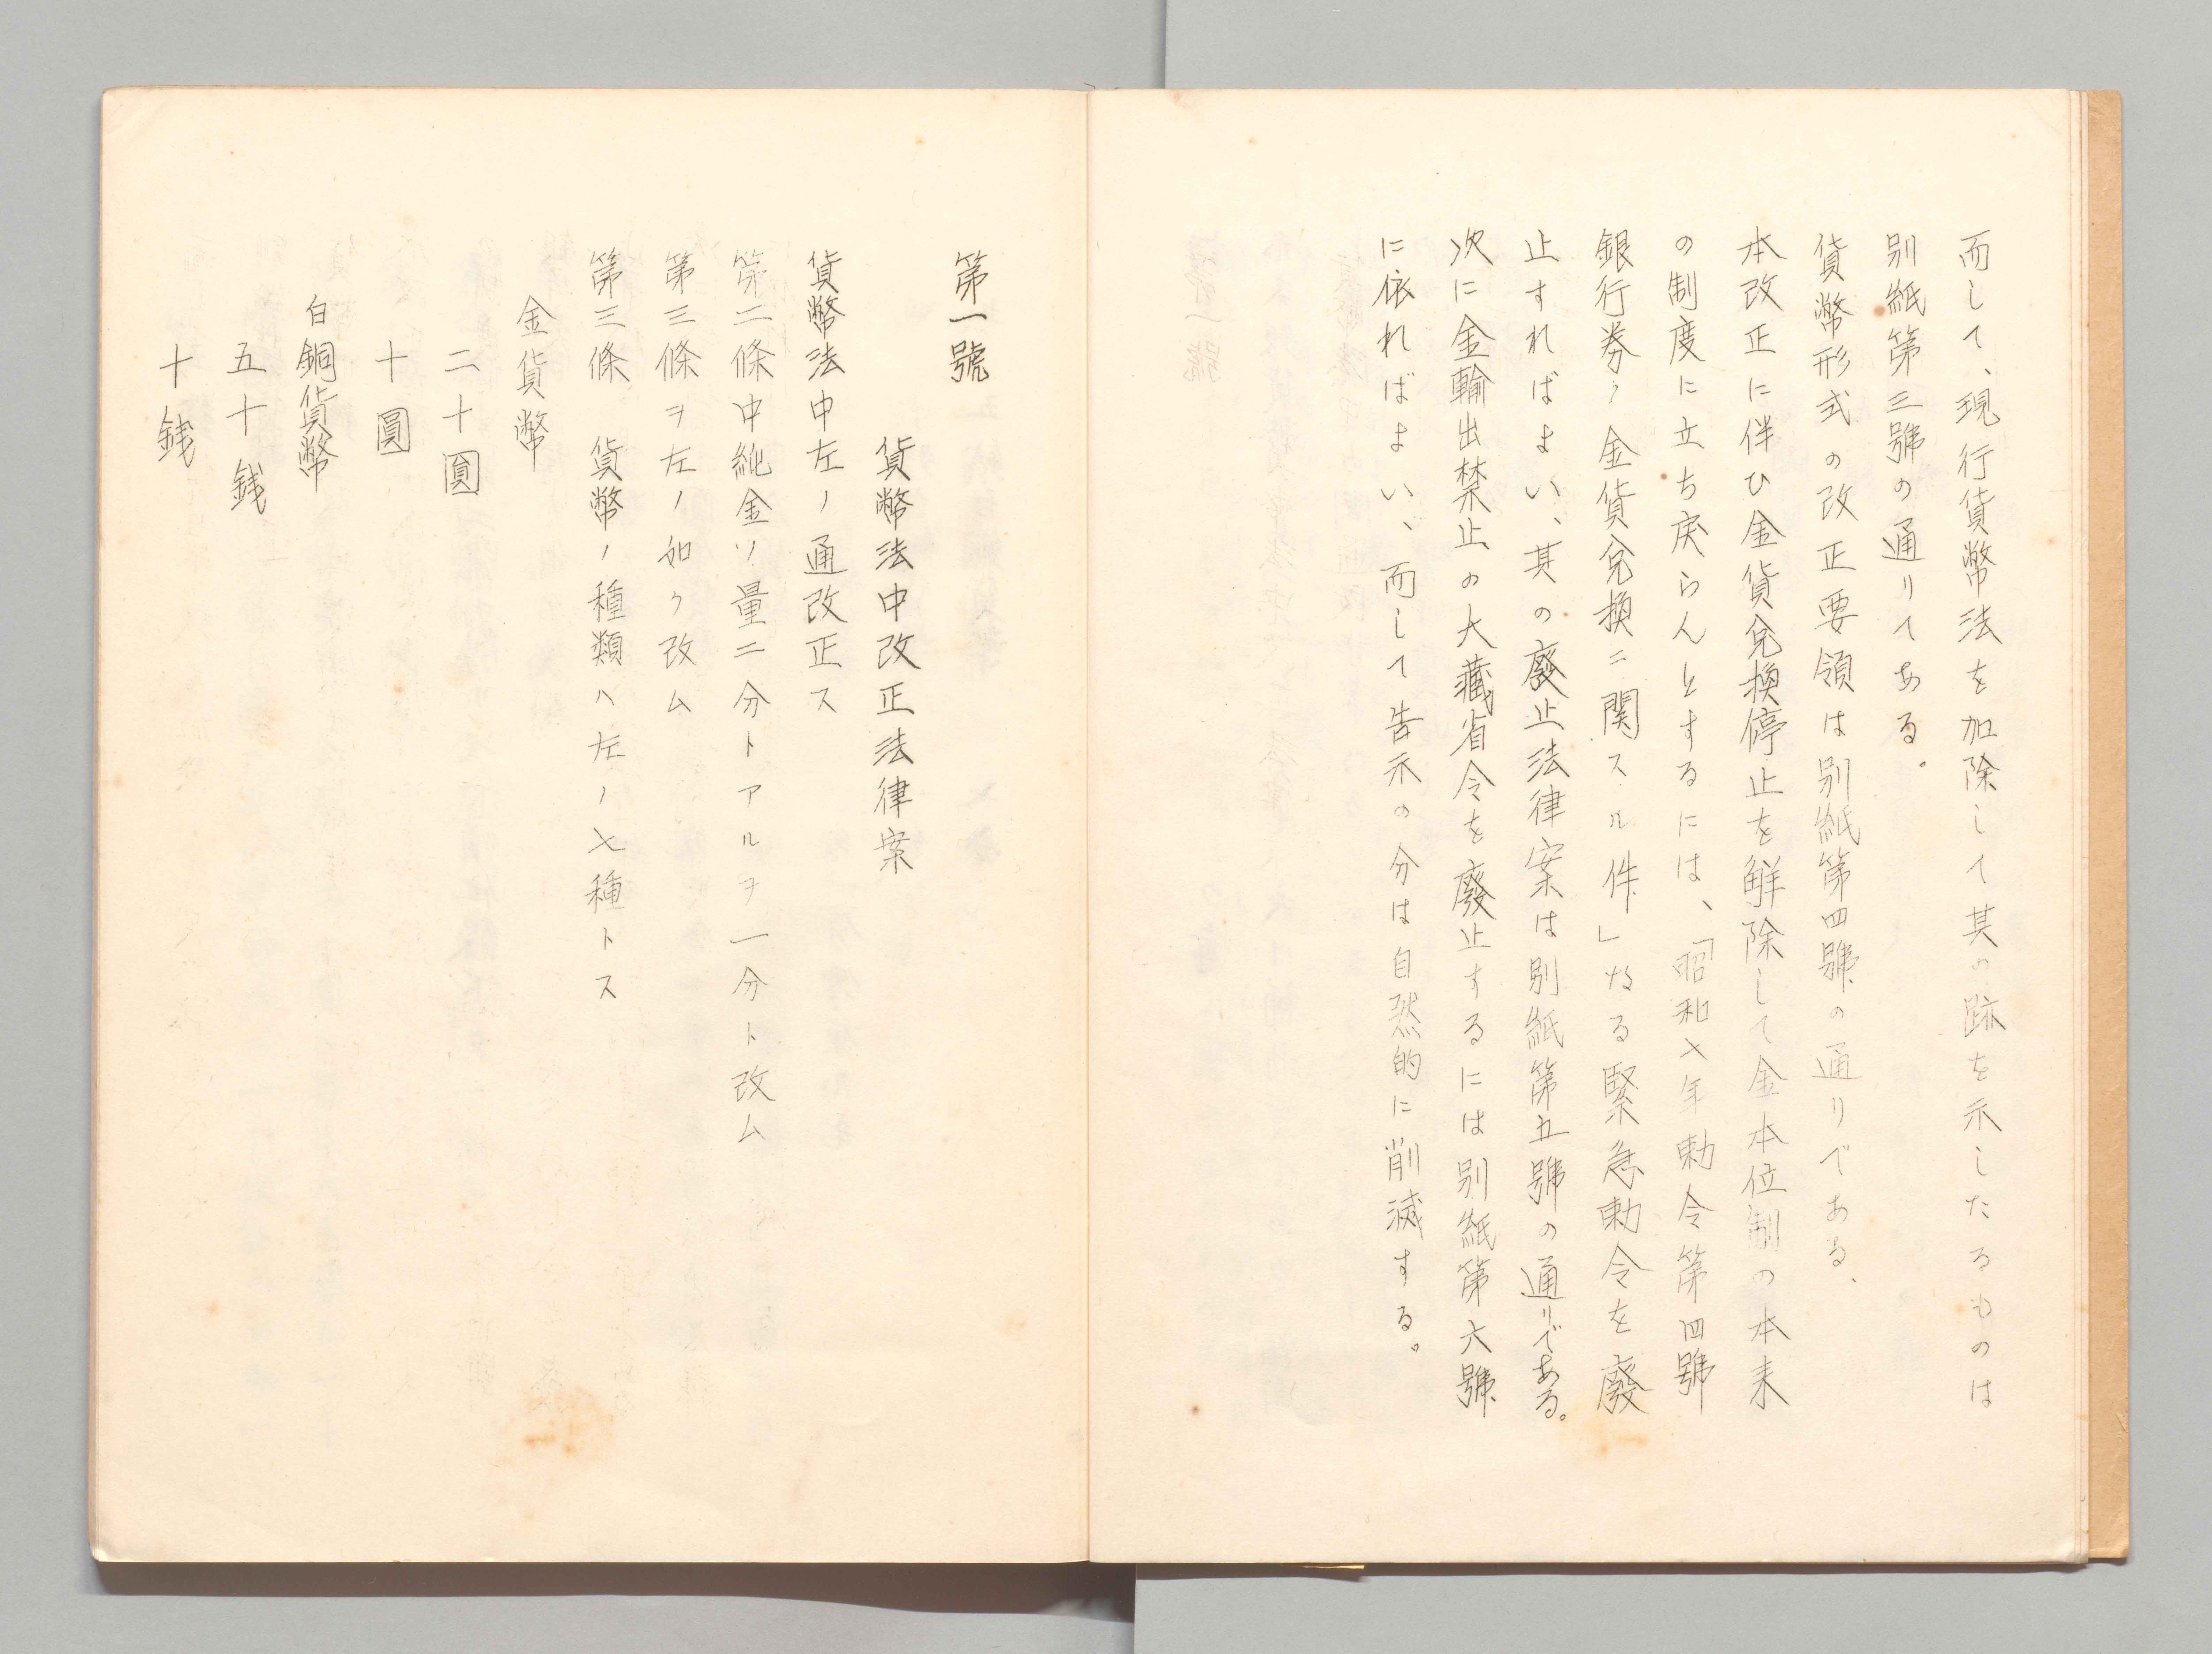 而して、現行貨幣法を加除して其の跡を示したるものは
別紙第三號の通りてある。
貨幣形式の改正要領は別紙第四號の通りである、
本改正に伴ひ金貨兌換停止を解除して金本位制の本来
の制度に立ち戻らんとするには、「昭和七年勅令第四號
銀行券ノ金貨兌換ニ関スル件」なる緊急勅令を廢
止すればよい、其の廢止法律案は別紙第五號の通りである。
次に金輸出禁止の大藏省令を廢止するには別紙第六號
に依ればよい、而して告示の分は自然的に削減する。
第一號
貨幣法中改正法律案
貨幣法中左ノ通改正ス
第二條中純金ノ量二分トアルヲ一分ト改ム
第三條ヲ左ノ如ク改ム
第三條 貨幣ノ種類ハ左ノ七種トス
金貨幣
二十圓
十圓
白銅貨幣
五十銭
十銭